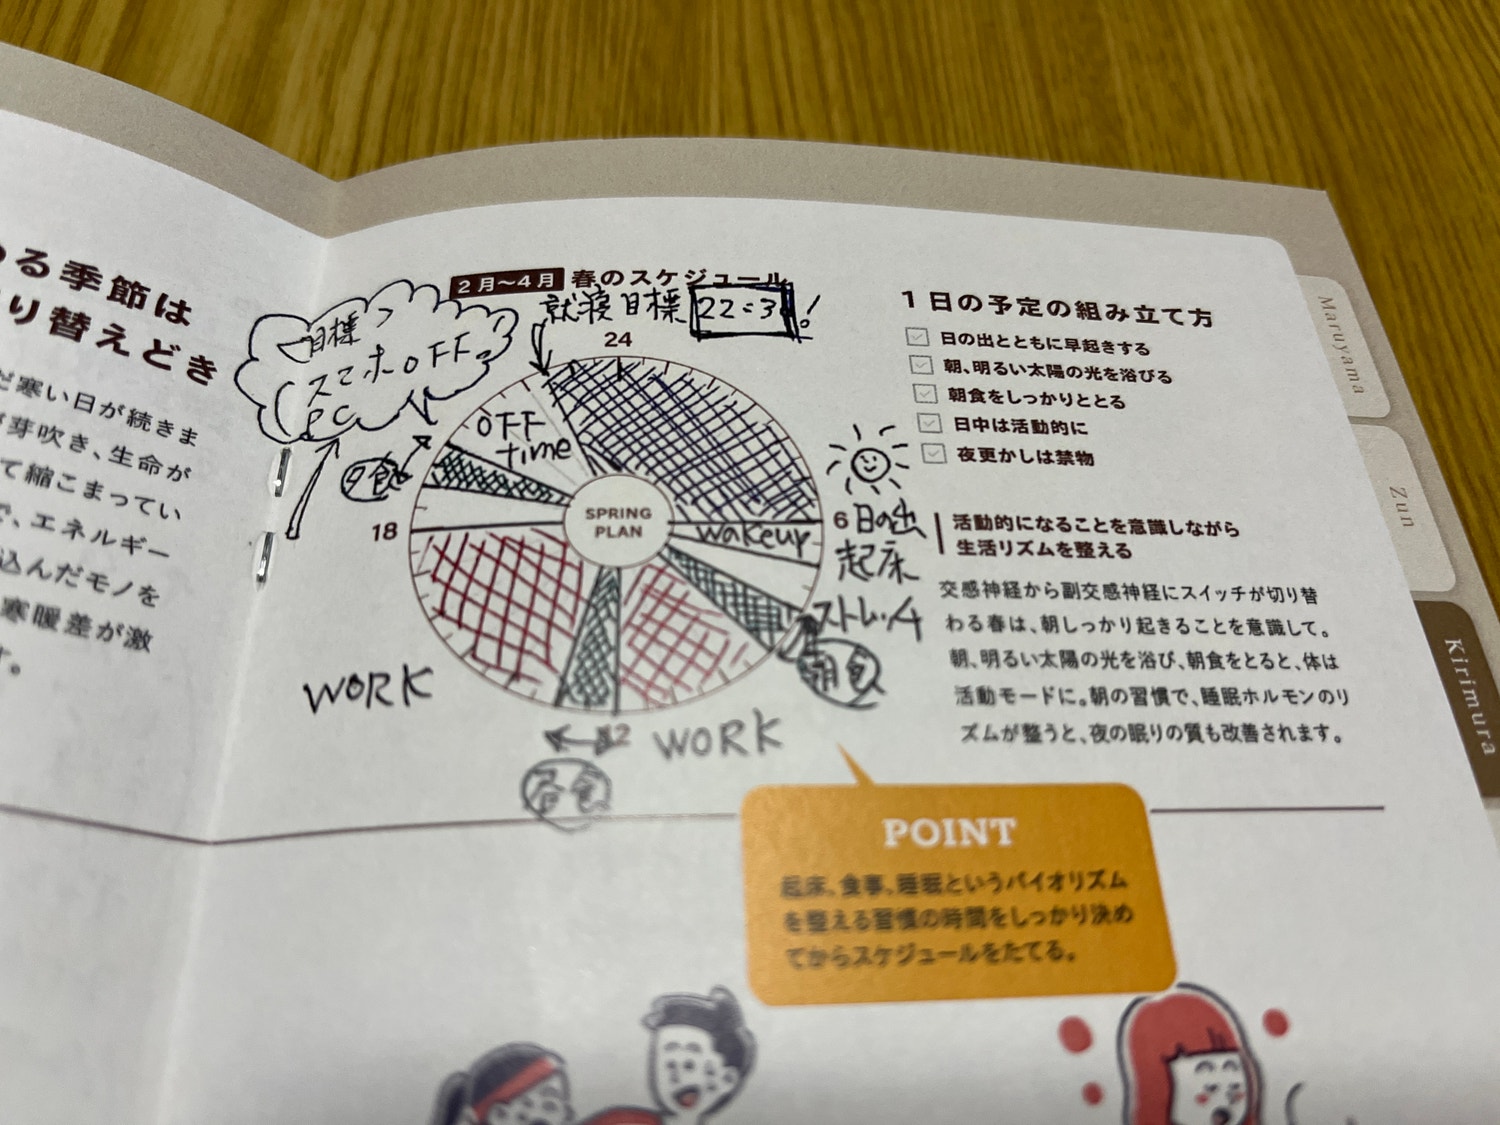 る季節は
り替えどき
だ寒い日が続きま
芽吹き、生命が
て縮こまってい
で、エネルギー
込んだモノを
寒暖差が激
す。
2月〜4月 春のスケジュール
就寝目標 22:30!
目標
スマホOFF。
PC
24
OFF
time
夕食
18
SPRING
PLAN
wakeup
6 日の出
起床
ストレッチ
朝食
WORK
12
WORK
昼食
1日の予定の組み立て方
日の出とともに早起きする
朝、明るい太陽の光を浴びる
朝食をしっかりととる
日中は活動的に
夜更かしは禁物
活動的になることを意識しながら
生活リズムを整える
交感神経から副交感神経にスイッチが切り替
わる春は、朝しっかり起きることを意識して。
朝、明るい太陽の光を浴び、朝食をとると、体は
活動モードに。朝の習慣で、睡眠ホルモンのリ
ズムが整うと、夜の眠りの質も改善されます。
POINT
起床、食事、睡眠というバイオリズム
を整える習慣の時間をしっかり決め
てからスケジュールをたてる。
Maruyama
Zun
Kirimura